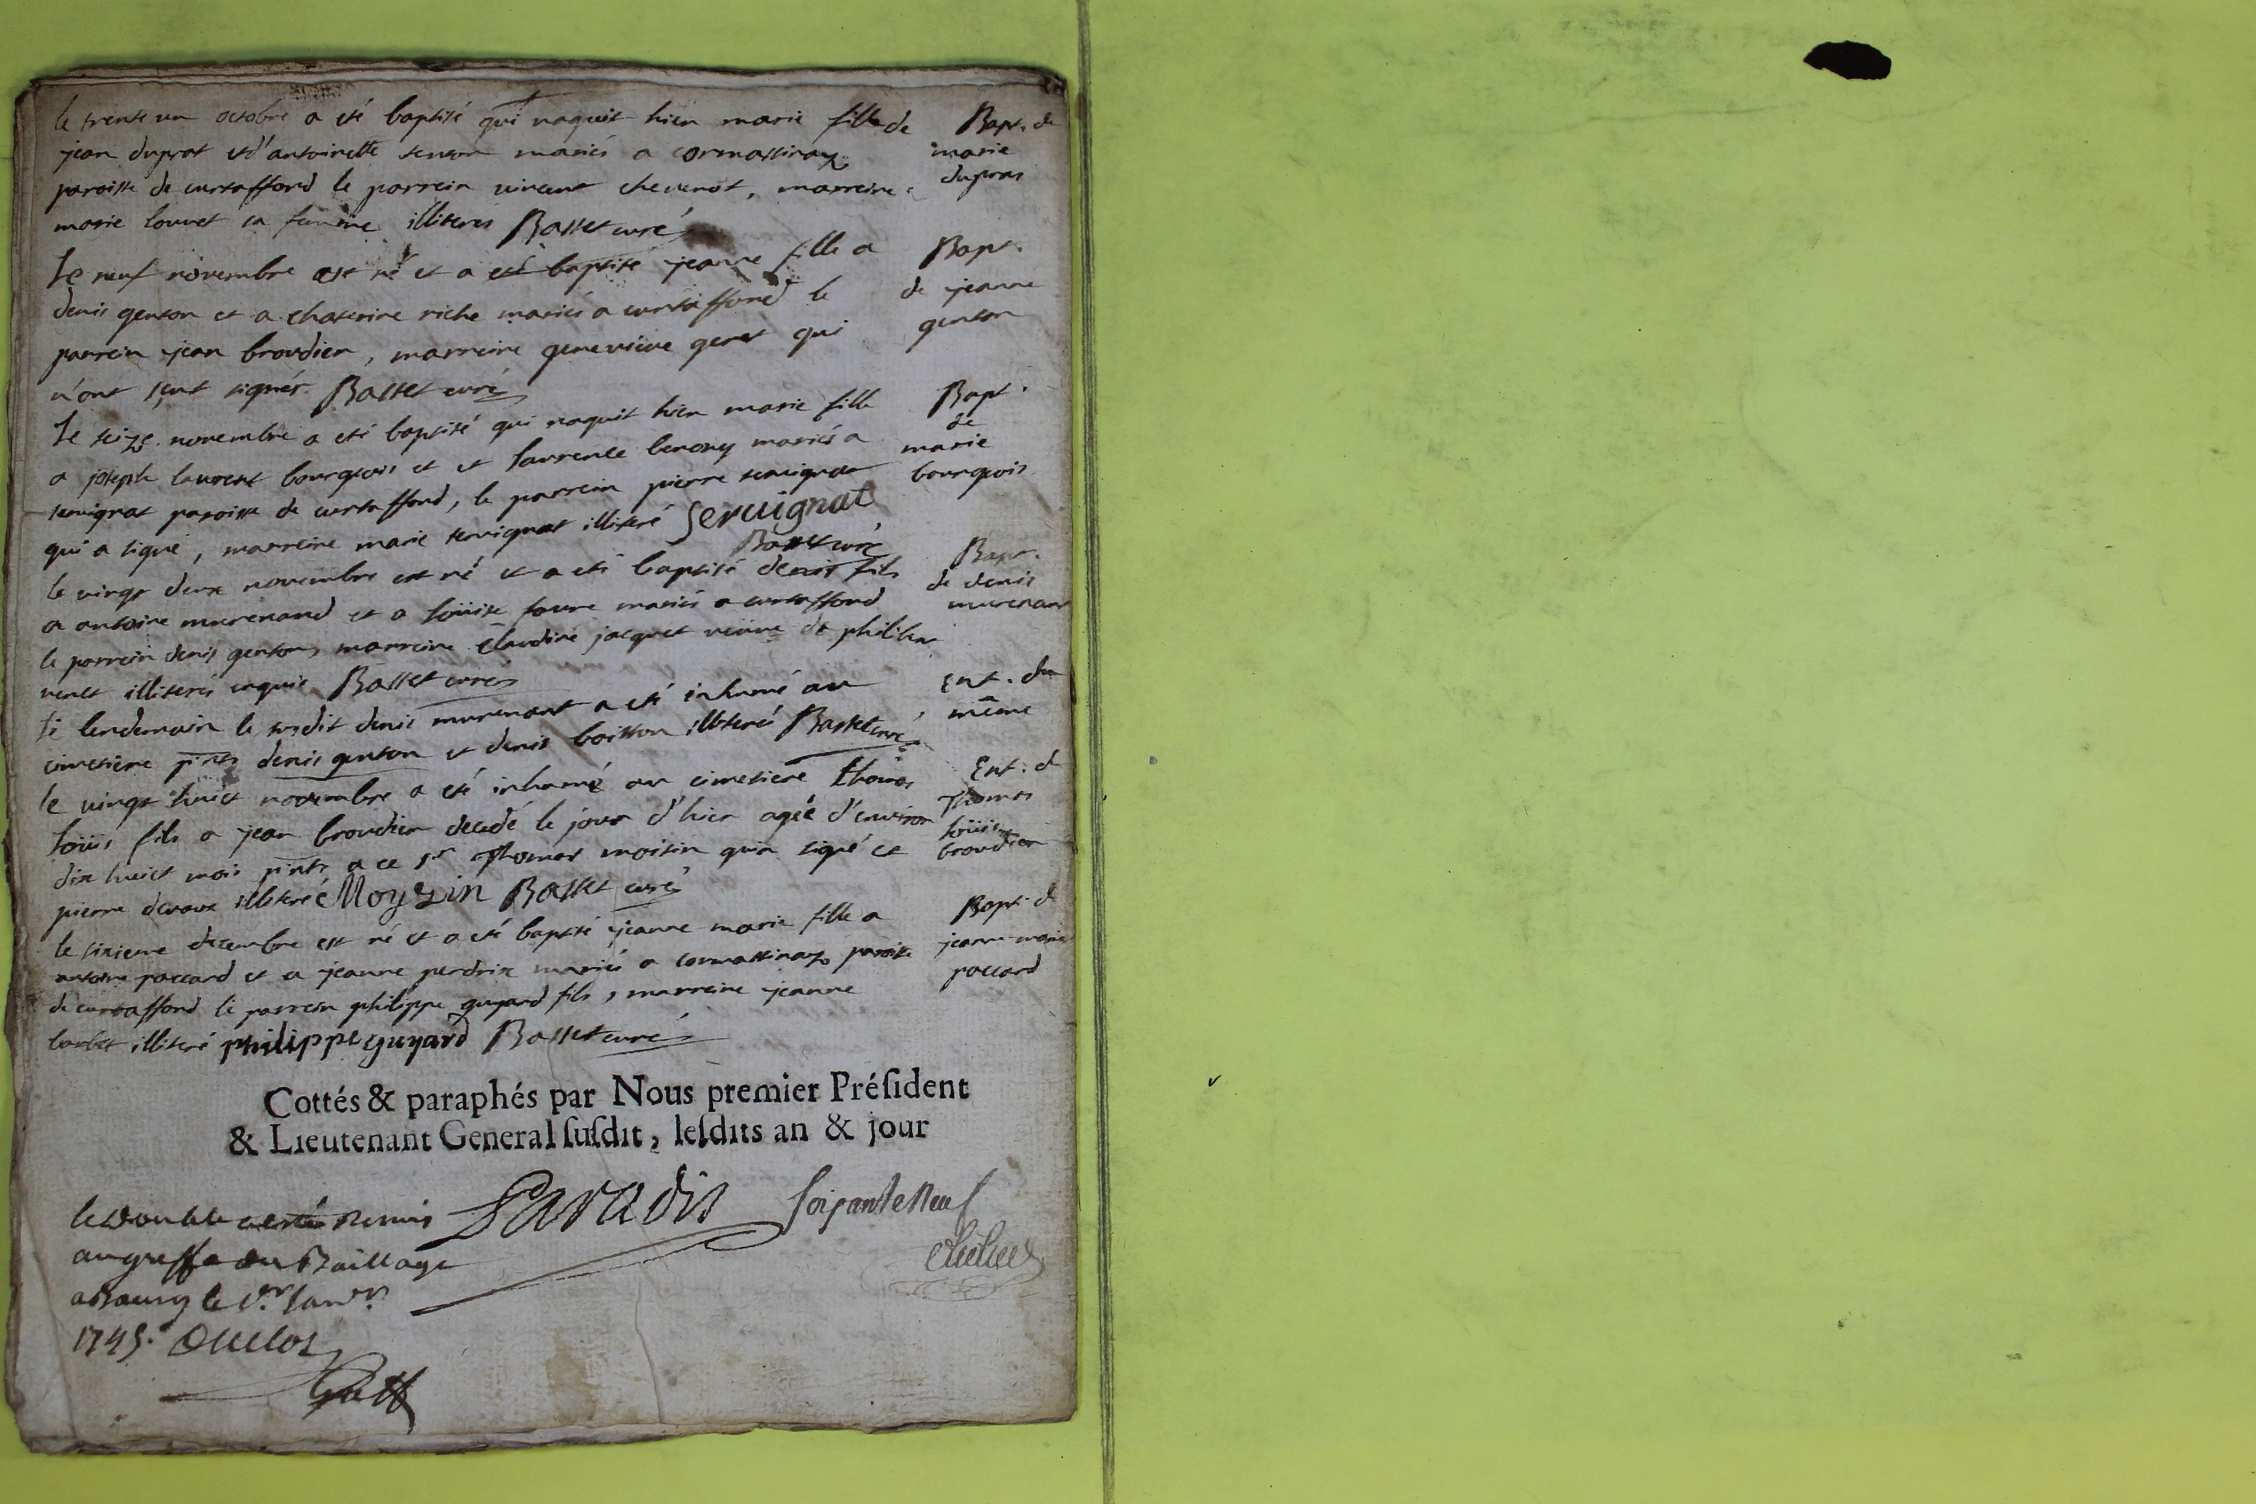 le trente un octobre a eté baptisé qui naquit hier marie fille de
jean duprat et d'antoinette tenton mariés a cormassinaz
paroisse de curtaffond le parrein vincent chevenot, marreine
marie louvet sa femme illiterés Basset curé
Bapt. de
marie
dupras
Le neuf novembre est né et a eté baptisé jeanne fille a
denis genton et a chaterine riche mariés a curtaffond le
parrein jean broudier, marreine geneviève geret qui
n'ont sçut signér Basset curé
Bapt.
de jeanne
genton
Le seize novembre a eté baptisé qui naquit hier marie fille
a joseph laurent bourgeois et et laurence benony mariés a
servignat paroisse de curtaffond, le parrein pierre servignat
qui a signé, marreine marie servignat illiteré Servignat
Basset curé
Bapt.
de
marie
bourgeois
le vingt deux novembre est né et a eté baptisé denis fils
a antoine murenand et a loüise favre mariés a curtaffond
le parrein denis genton, marreine claudine jacquet veuve de philiber
venet illiterés enquis Basset curé
Bapt.
de denis
murenant
Le lendemain le susdit denis murenant a eté inhumé au
cimetière pints denis genton et denis boisson illiterés Basset curé
Ent. du
même
le vingt huict novembre a eté inhumé au cimetiere thomas
loüis fils a jean broudier decedé le jour d'hier agée d'environ
dix huict mois pints a ce sr thomas moisin qui a signé et
pierre devaux illiteré Moyzin Basset curé
Ent. de
Thomas
loüis
broudier
le sixieme decembre est né et a eté baptisé jeanne marie fille a
antoine paccard et a jeanne perdrix mariés a cormassinaz paroisse
de curtaffond le parrein philippe guyard fils, marreine jeanne
barbet illiteré philippe guyard Basset curé
Bapt. de
jeanne marie
paccard
Cottés & paraphés par Nous premier Préſident
& Lieutenant General ſuſdit, leſdits an & jour
le double a esté Remis
au greffe du Baillage
a Bourg le 1er Janvr
1745. Duclos
Greff
Paradis
soixante neuf